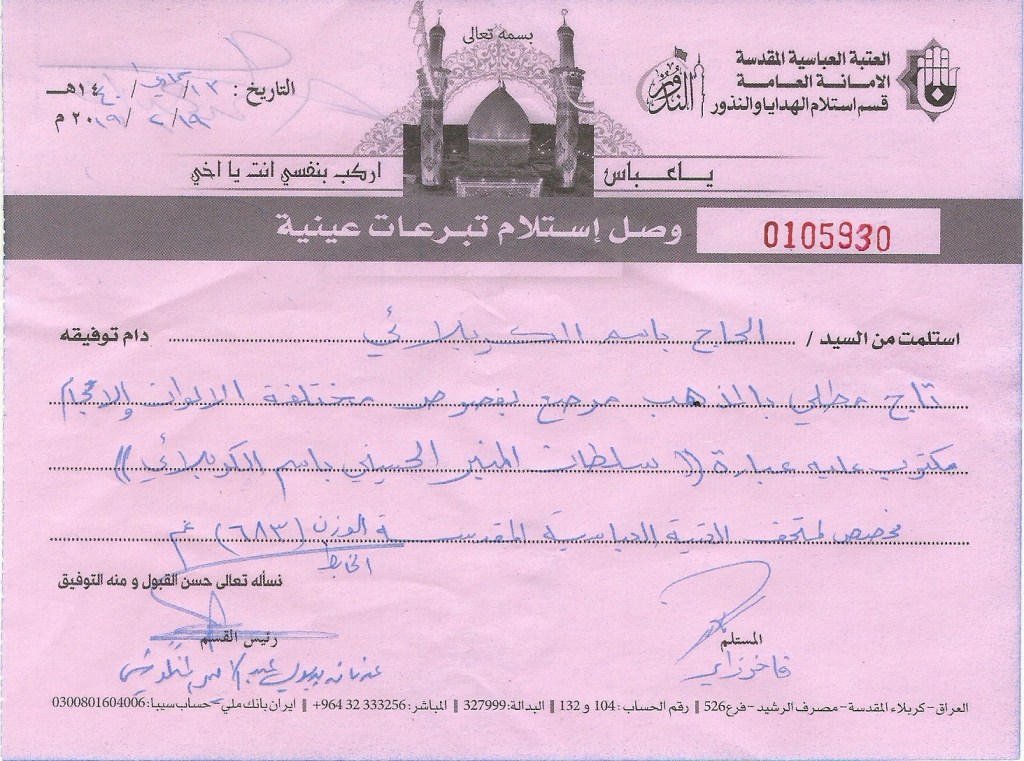 بسمه تعالى
العتبة العباسية المقدسة
الامانة العامة
قسم استلام الهدايا والنذور
النذور
التاريخ : ١٣ / / ١٤٤٠هـ
١٩ / ٢ / ٢٠١٩ م
ياعباس
اركب بنفسي انت يا اخي
0105930
وصل إستلام تبرعات عينية
استلمت من السيد / الحاج باسم الكربلائي دام توفيقه
تاج مطلي بالذهب مرصع بفصوص مختلفة الالوان والاحجام
مكتوب عليه عبارة (( سلطان المنبر الحسيني باسم الكربلائي ))
مخصص لمتحف العتبة العباسية المقدسة الوزن (٦٨٣) غم
نسأله تعالى حسن القبول و منه التوفيق
المستلم
رئيس القسم
فاخر
العراق - كربلاء المقدسة - مصرف الرشيد - فرع526 || رقم الحساب: 104 و 132 || البدالة: 327999 || المباشر: 333256 32 964+ || ايران بانك ملي - حساب سيبا: 0300801604006